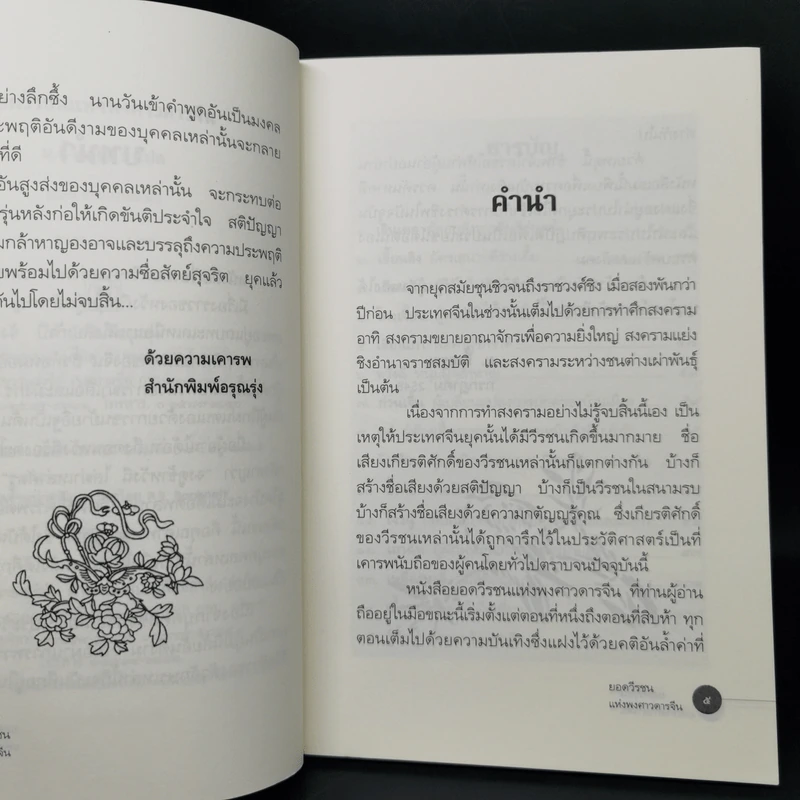 ย่างลึกซึ้ง นานวันเข้าคำพูดอันเป็นมงคล
ะพฤติอันดีงามของบุคคลเหล่านั้นจะกลาย
ที่ดี
อันสูงส่งของบุคคลเหล่านั้น จะกระทบต่อ
รุ่นหลังก่อให้เกิดขันติประจำใจ สติปัญญา
มกล้าหาญองอาจและบรรลุถึงความประพฤติ
บพร้อมไปด้วยความซื่อสัตย์สุจริต ยุคแล้ว
กันไปโดยไม่จบสิ้น...
ด้วยความเคารพ
สำนักพิมพ์อรุณรุ่ง
ชน
จีน
คำนำ
จากยุคสมัยชุนชิวจนถึงราชวงค์ชิง เมื่อสองพันกว่า
ปีก่อน ประเทศจีนในช่วงนั้นเต็มไปด้วยการทำศึกสงคราม
อาทิ สงครามขยายอาณาจักรเพื่อความยิ่งใหญ่ สงครามแย่ง
ชิงอำนาจราชสมบัติ และสงครามระหว่างชนต่างเผ่าพันธุ์
เป็นต้น
เนื่องจากการทำสงครามอย่างไม่รู้จบสิ้นนี้เอง เป็น
เหตุให้ประเทศจีนยุคนั้นได้มีวีรชนเกิดขึ้นมากมาย ชื่อ
เสียงเกียรติศักดิ์ของวีรชนเหล่านั้นก็แตกต่างกัน บ้างก็
สร้างชื่อเสียงด้วยสติปัญญา บ้างก็เป็นวีรชนในสนามรบ
บ้างก็สร้างชื่อเสียงด้วยความกตัญญูรู้คุณ ซึ่งเกียรติศักดิ์
ของวีรชนเหล่านั้นได้ถูกจารึกไว้ในประวัติศาสตร์เป็นที่
เคารพนับถือของผู้คนโดยทั่วไปตราบจนปัจจุบันนี้
หนังสือยอดวีรชนแห่งพงศาวดารจีน ที่ท่านผู้อ่าน
ถืออยู่ในมือขณะนี้เริ่มตั้งแต่ตอนที่หนึ่งถึงตอนที่สิบห้า ทุก
ตอนเต็มไปด้วยความบันเทิงซึ่งแฝงไว้ด้วยคติอันล้ำค่าที่
ยอดวีรชน
แห่งพงศาวดารจีน
๕